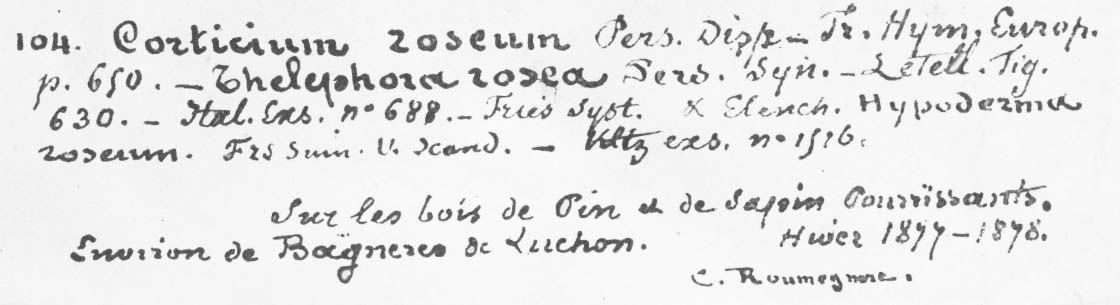 104. Corticium roseum Pers. Disp. – Fr. Hym. Europ.
p. 650. – Thelephora rosea Pers. Syn. – Letell. fig.
630. – Ital. Exs. nº 688. – Fries Syst. & Elench. Hypoderma
roseum. Frs Sum. V. Scand. – Kltz exs. nº 1516.
Sur les bois de Pin & de Sapin Pourrïssants.
Environ de Bagneres de Luchon. Hiver 1877–1878.
C. Roumeguere.